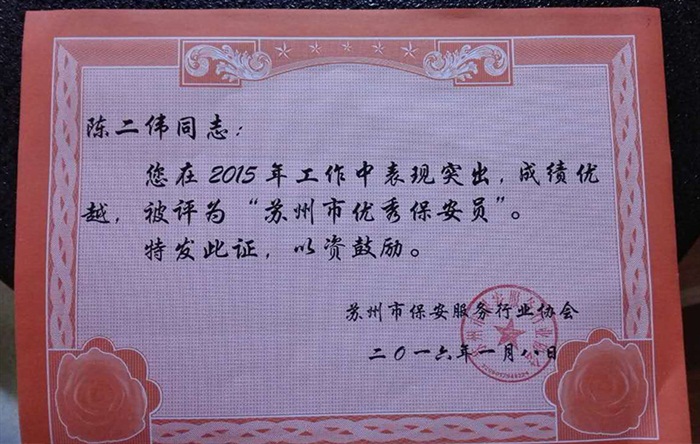 陈二伟同志：
您在2015年工作中表现突出，成绩优
越，被评为“苏州市优秀保安员”。
特发此证，以资鼓励。
苏州市保安服务行业协会
二〇一六年一月八日